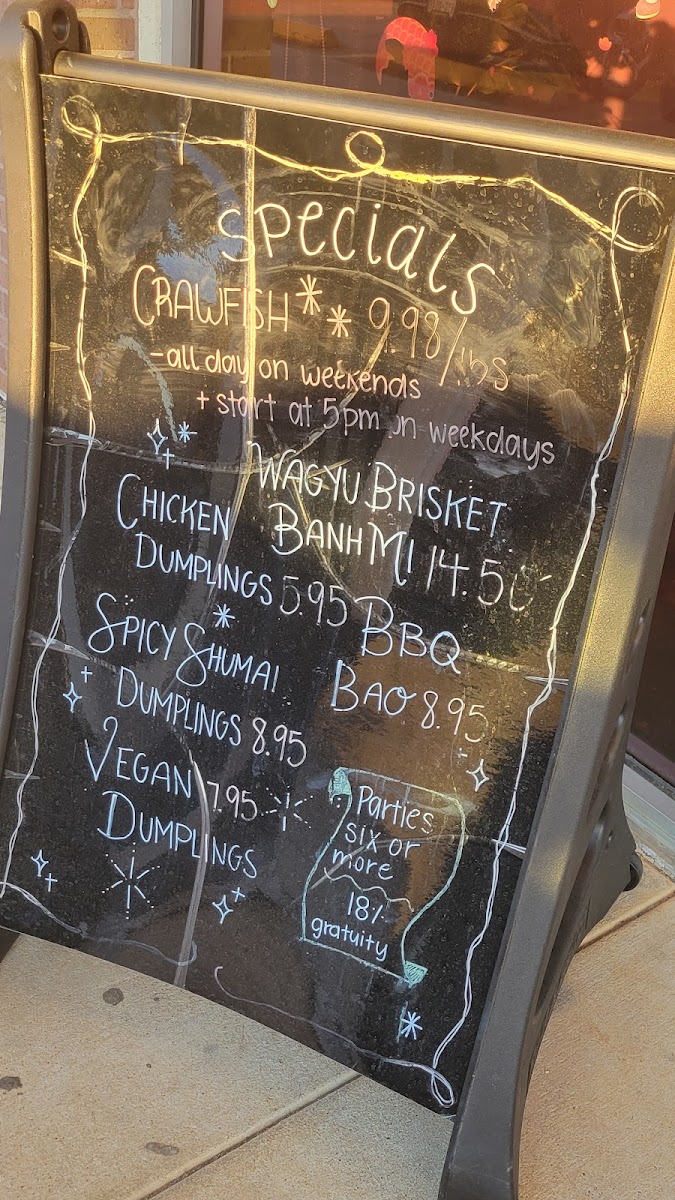 Specials
CRAWFISH ** 9.98/lbs
-all day on weekends
+ start at 5pm on weekdays
WAGYU BRISKET
BANH MI 14.50
CHICKEN
DUMPLINGS 5.95
BBQ
BAO 8.95
SPICY SHUMAI
DUMPLINGS 8.95
VEGAN 7.95
DUMPLINGS
Parties
six or
more
18%
gratuity